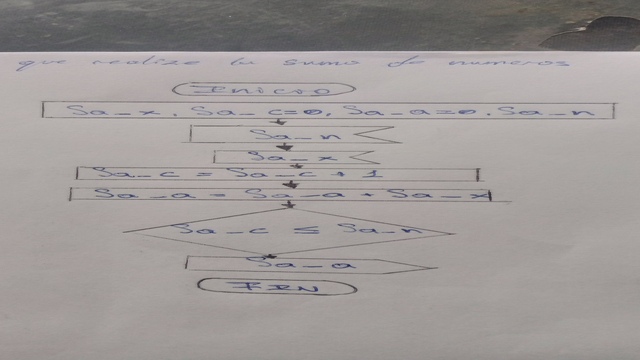 que realize la suma de numeros
Inicio
Sa_x, Sa_c=0, Sa_a=0, Sa_n
Sa_n
Sa_x
Sa_c = Sa_c + 1
Sa_a = Sa_a + Sa_x
Sa_c ≤ Sa_n
Sa_a
FIN